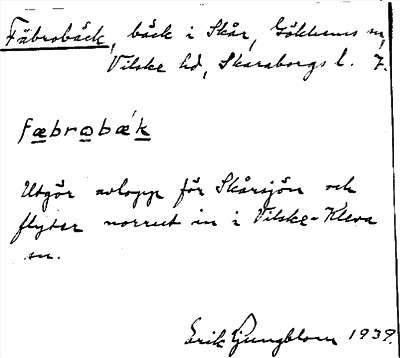 Fäbrobäck, bäck i Skår, Gökhems sn,
Vilske hd, Skaraborgs l. 7.
fæbrobǽk
Utgör avlopp för Skårsjön och
flyter norrut in i Vilske-Kleva
sn.
Erik Ljungblom 1939.